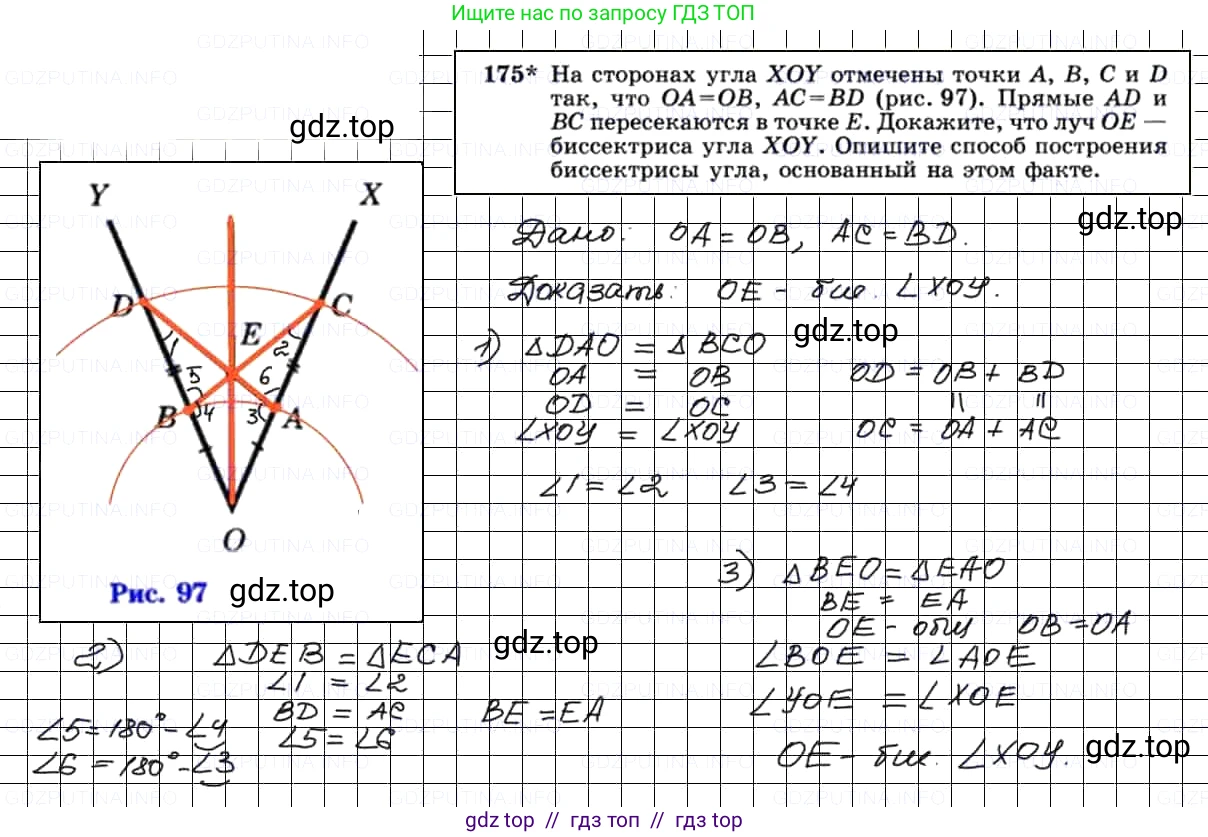 Ищите нас по запросу ГДЗ ТОП
175* На сторонах угла XOY отмечены точки A, B, C и D
так, что OA=OB, AC=BD (рис. 97). Прямые AD и
BC пересекаются в точке E. Докажите, что луч OE —
биссектриса угла XOY. Опишите способ построения
биссектрисы угла, основанный на этом факте.
gdz.top
Y X
D C
E
1 2
5 6
B 4 3 A
O
Рис. 97 gdz.top
gdz.top
Дано: OA = OB, AC = BD.
Доказать: OE - бис. ∠XOY.
gdz.top
1) △DAO = △BCO
OA = OB OD = OB + BD
OD = OC || ||
∠XOY = ∠XOY OC = OA + AC
∠1 = ∠2 ∠3 = ∠4
2) △DEB = △ECA gdz.top
∠1 = ∠2
BD = AC BE = EA
∠5 = 180° - ∠4 ∠5 = ∠6
∠6 = 180° - ∠3
3) △BEO = △EAO
BE = EA
OE - общ OB = OA
∠BOE = ∠AOE
∠YOE = ∠XOE
OE - бис. ∠XOY. gdz.top
gdz top // гдз топ // гдз top
GDZPUTINA.INFO